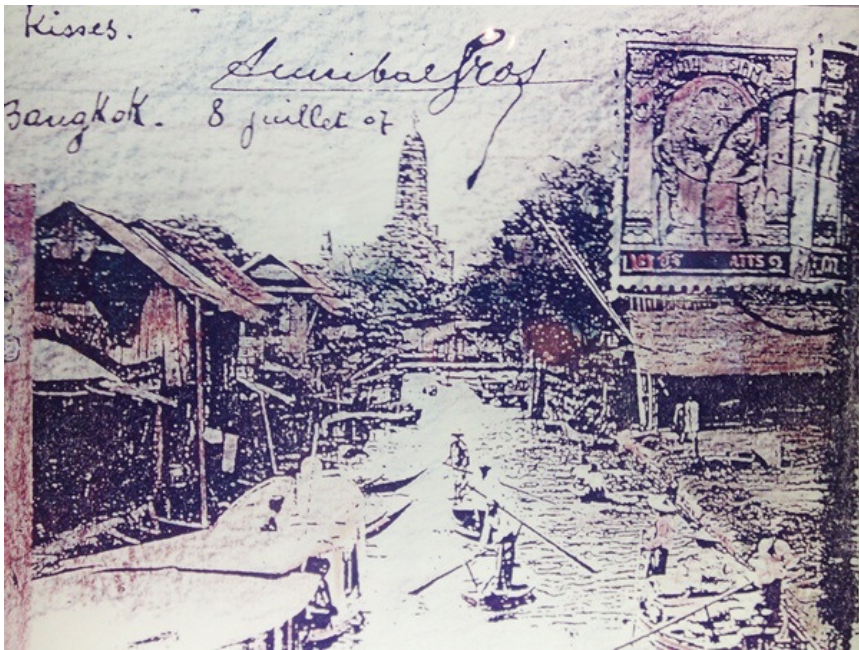 Kisses.
Annibal Gros
Bangkok. 8 juillet 07
SIAM
ATTS